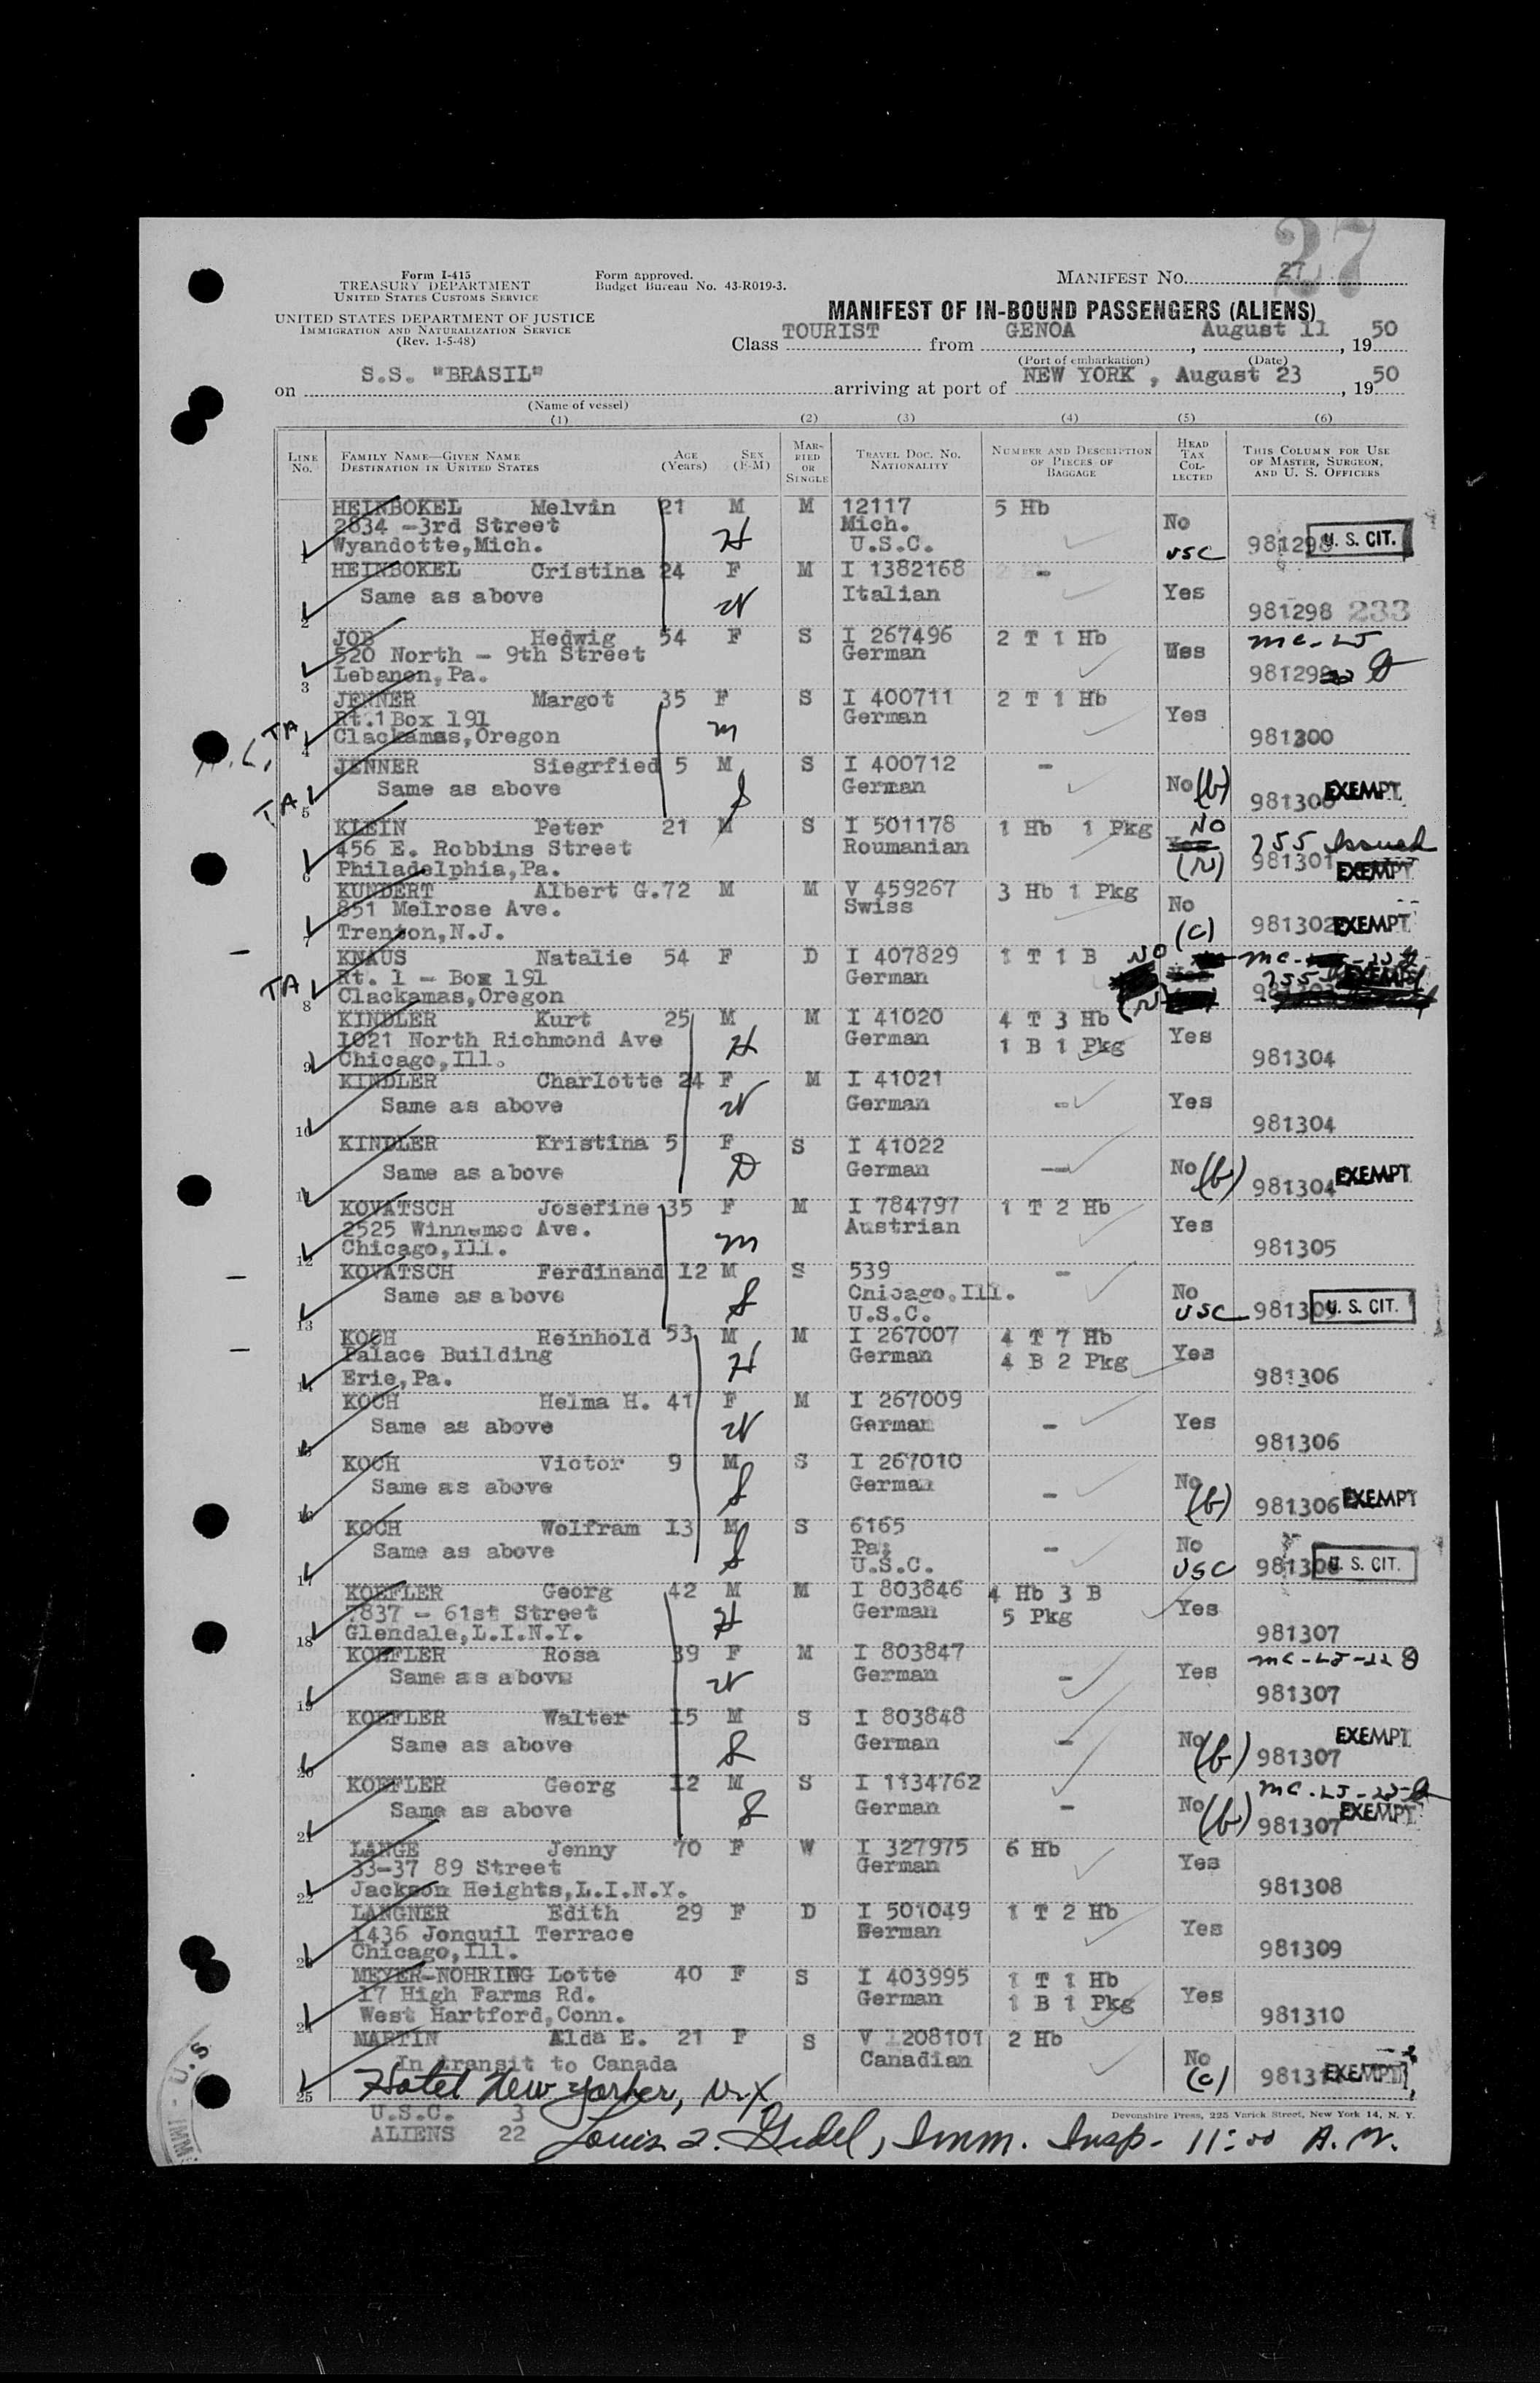 27
Form I-415
TREASURY DEPARTMENT
UNITED STATES CUSTOMS SERVICE
UNITED STATES DEPARTMENT OF JUSTICE
IMMIGRATION AND NATURALIZATION SERVICE
(Rev. 1-5-48)
Form approved.
Budget Bureau No. 43-R019-3.
MANIFEST NO. 27
MANIFEST OF IN-BOUND PASSENGERS (ALIENS)
Class TOURIST from GENOA, August 11, 1950
(Port of embarkation) (Date)
on S.S. "BRASIL" arriving at port of NEW YORK, August 23, 1950
(Name of vessel)
(1) (2) (3) (4) (5) (6)
LINE No. FAMILY NAME—GIVEN NAME DESTINATION IN UNITED STATES AGE (Years) SEX (F-M) MARRIED OR SINGLE TRAVEL DOC. NO. NATIONALITY NUMBER AND DESCRIPTION OF PIECES OF BAGGAGE HEAD TAX COLLECTED THIS COLUMN FOR USE OF MASTER, SURGEON, AND U. S. OFFICERS
HEINBOKEL Melvin 21 M M 12117 5 Hb
2834 -3rd Street H Mich. No
1 Wyandotte,Mich. U.S.C. USC 981298 U. S. CIT.
HEINBOKEL Cristina 24 F M I 1382168 -
Same as above W Italian Yes
2 981298 233
JOB Hedwig 54 F S I 267496 2 T 1 Hb
520 North - 9th Street German Yes
3 Lebanon,Pa. 981299
JENNER Margot 35 F S I 400711 2 T 1 Hb
TA Rt.1 Box 191 m German Yes
4 Clackamas,Oregon 981300
JENNER Siegrfied 5 M S I 400712 -
TA Same as above S German No (b)
5 981300 EXEMPT
KLEIN Peter 21 M S I 501178 1 Hb 1 Pkg NO
456 E. Robbins Street Roumanian 755 Issued
6 Philadelphia,Pa. (N) 981301 EXEMPT
KUNDERT Albert G. 72 M M V 459267 3 Hb 1 Pkg
851 Melrose Ave. Swiss No
7 Trenton,N.J. (c) 981302 EXEMPT
KNAUS Natalie 54 F D I 407829 1 T 1 B NO
TA Rt. 1 - Box 191 German 755 EXEMPT
8 Clackamas,Oregon (N)
KINDLER Kurt 25 M M I 41020 4 T 3 Hb
1021 North Richmond Ave H German 1 B 1 Pkg Yes
9 Chicago,Ill. 981304
KINDLER Charlotte 24 F M I 41021
Same as above W German - Yes
10 981304
KINDLER Kristina 5 F S I 41022
Same as above D German - No (b)
11 981304 EXEMPT
KOVATSCH Josefine 35 F M I 784797 1 T 2 Hb
2525 Winnemac Ave. m Austrian Yes
12 Chicago,Ill. 981305
KOVATSCH Ferdinand 12 M S 539 -
Same as above S Chicago,Ill. No
13 U.S.C. USC U. S. CIT.
KOCH Reinhold 53 M M I 267007 4 T 7 Hb
Palace Building H German 4 B 2 Pkg Yes
14 Erie,Pa. 981306
KOCH Helma H. 41 F M I 267009
Same as above W German - Yes
15 981306
KOCH Victor 9 M S I 267010
Same as above S German - No
16 (b) 981306 EXEMPT
KOCH Wolfram 13 M S 6165
Same as above S Pa; - No
17 U.S.C. USC 981306 U. S. CIT.
KOEFLER Georg 42 M M I 803846 4 Hb 3 B
7837 - 61st Street H German 5 Pkg Yes
18 Glendale,L.I.N.Y. 981307
KOEFLER Rosa 39 F M I 803847
Same as above W German - Yes
19 981307
KOEFLER Walter 15 M S I 803848
Same as above S German - No (b) EXEMPT
20 981307
KOEFLER Georg 12 M S I 1134762
Same as above S German - No (b)
21 981307 EXEMPT
LANGE Jenny 70 F W I 327975 6 Hb
33-37 89 Street German Yes
22 Jackson Heights,L.I.N.Y. 981308
LANGNER Edith 29 F D I 501049 1 T 2 Hb
1436 Jonquil Terrace German Yes
23 Chicago,Ill. 981309
MEYER-NOHRING Lotte 40 F S I 403995 1 T 1 Hb
17 High Farms Rd. German 1 B 1 Pkg Yes
24 West Hartford,Conn. 981310
MARTIN Alda E. 21 F S V 1208101 2 Hb
In transit to Canada Canadian No
25 Hotel New Yorker, N.Y. (c) EXEMPT
Devonshire Press, 225 Varick Street, New York 14, N. Y.
U.S.C. 3
ALIENS 22
Imm. Insp. 11:00 A.M.